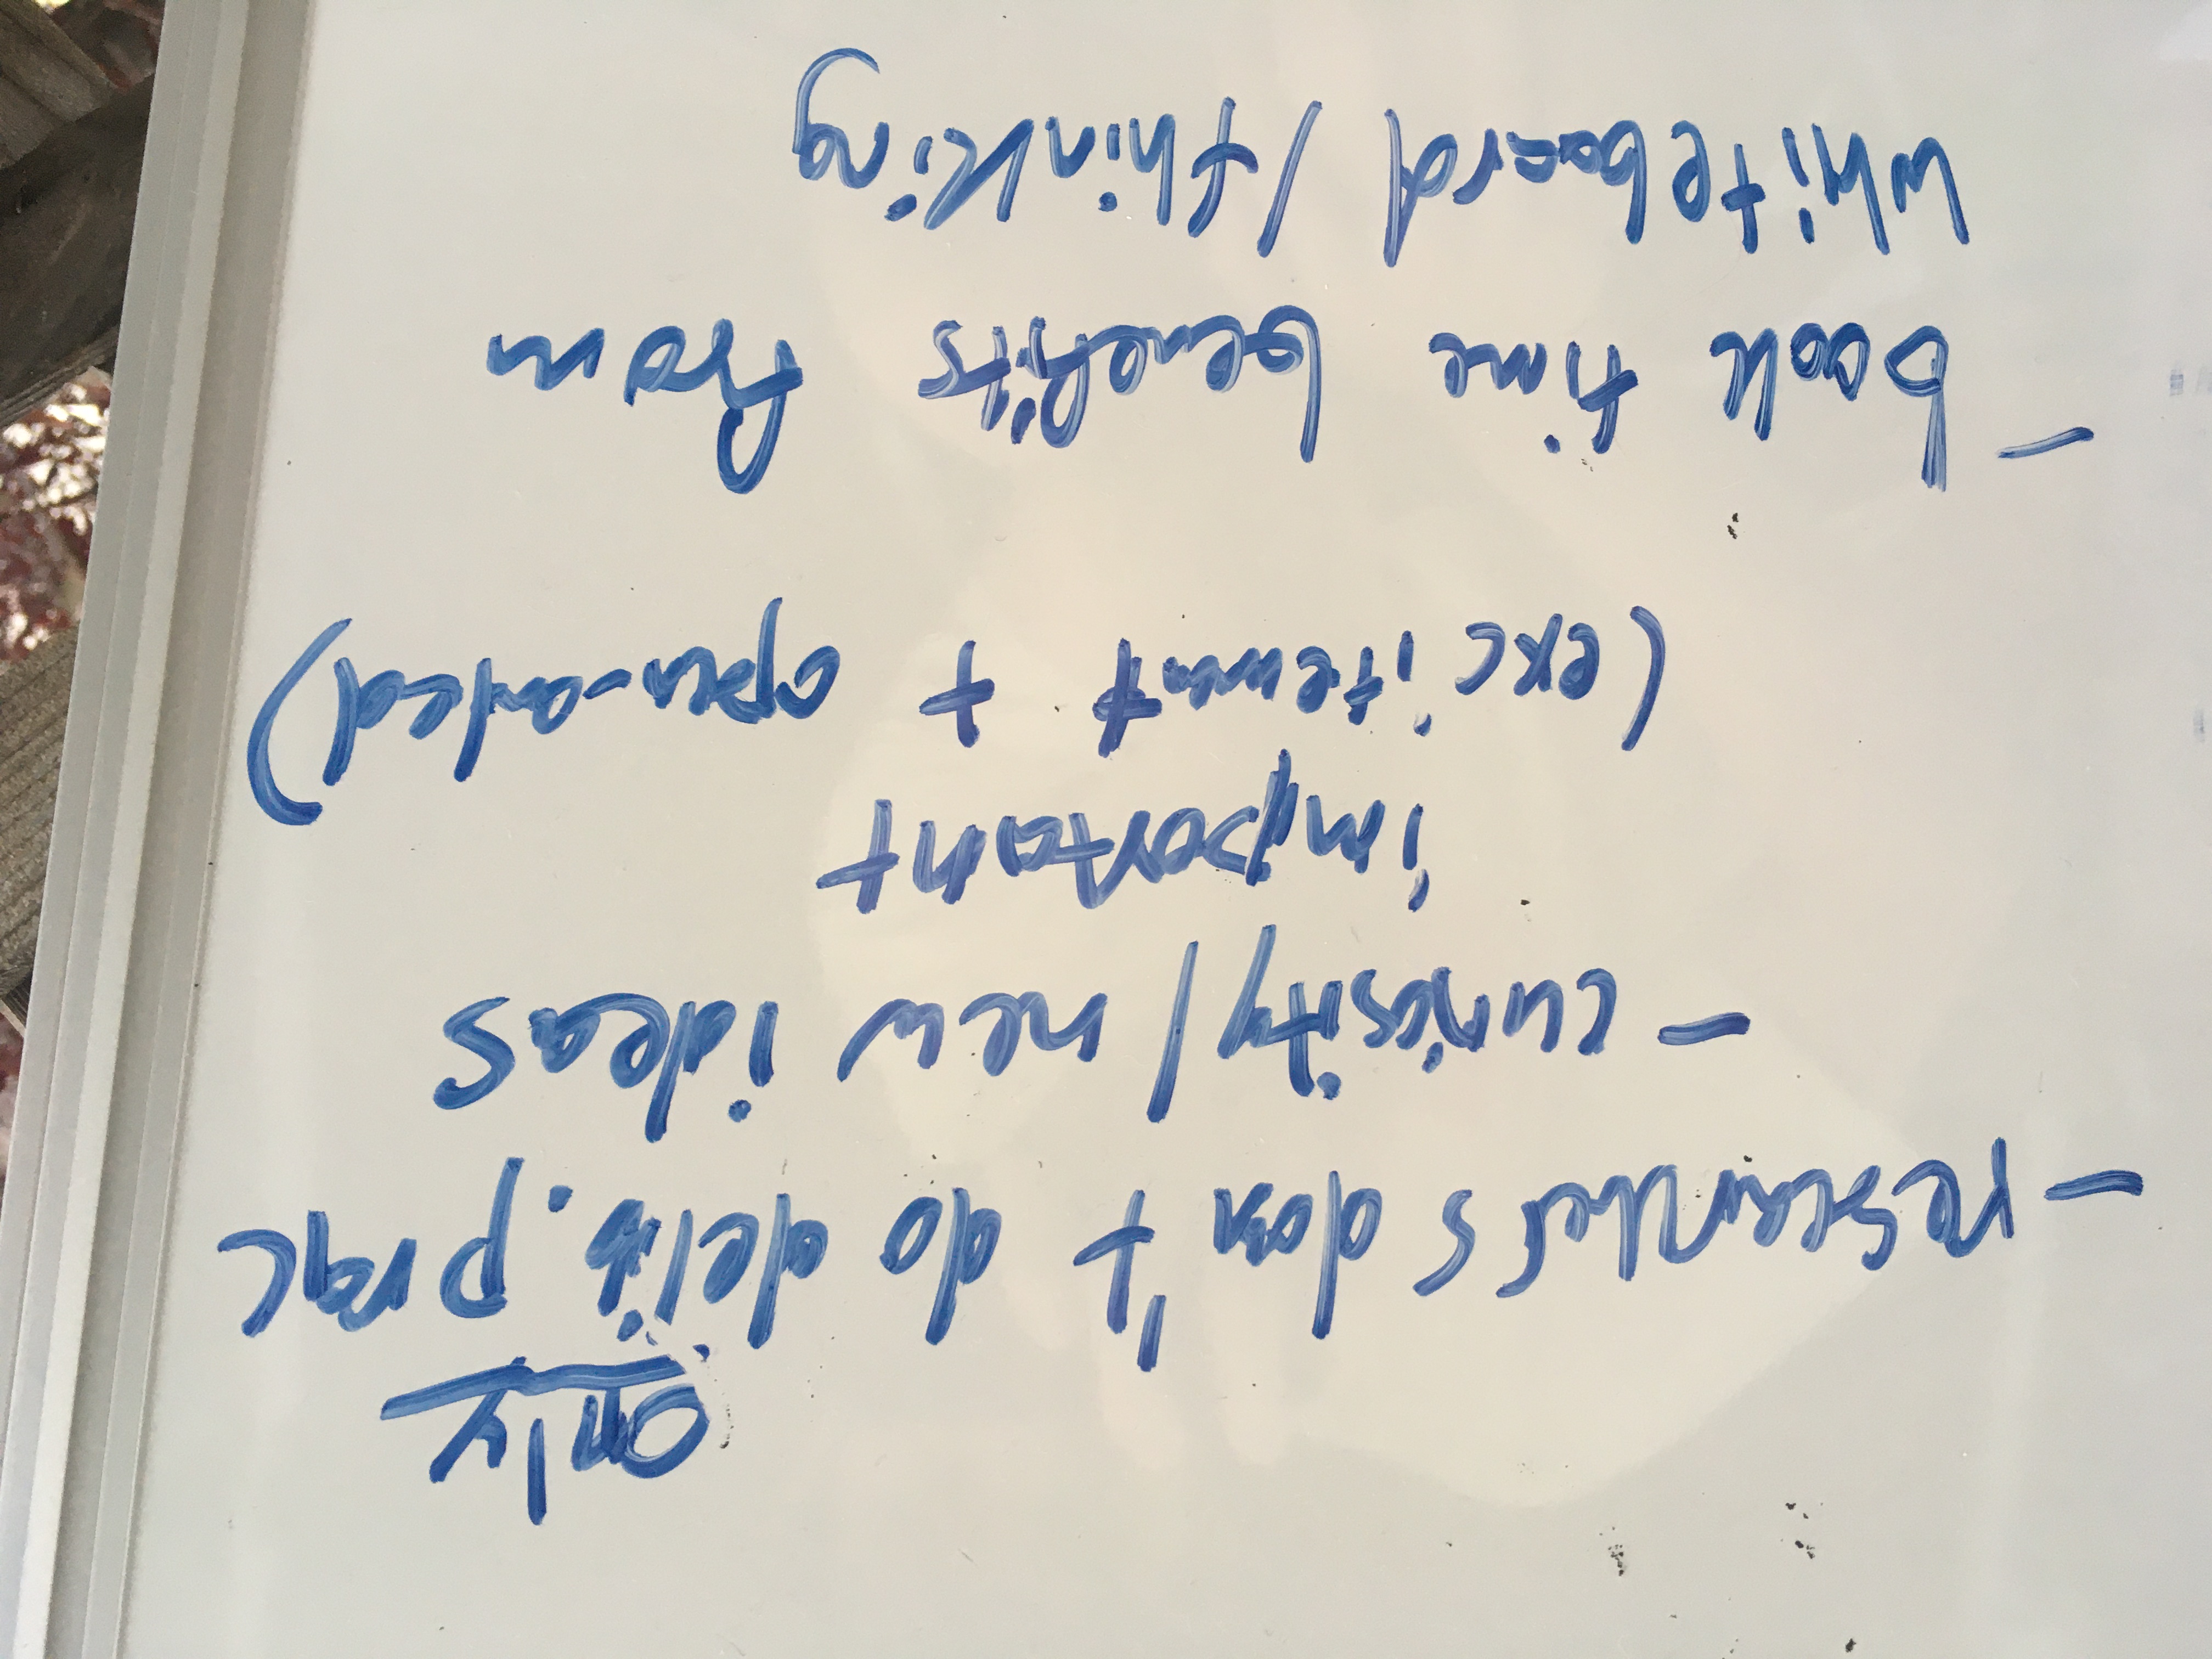 only
- researchers don't do delib. prac
- curiosity / new ideas
important
(excitement + open-ended)
- book time benefits from
whiteboard / thinking